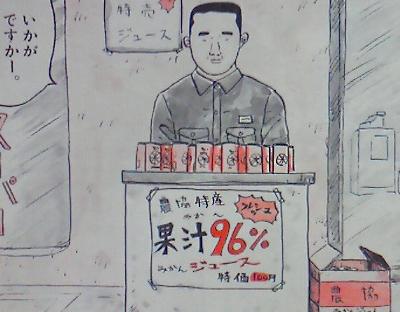 いかが
ですかー。
特売
ジュース
農協特産
果汁96%
みかんジュース
特価100円
農協